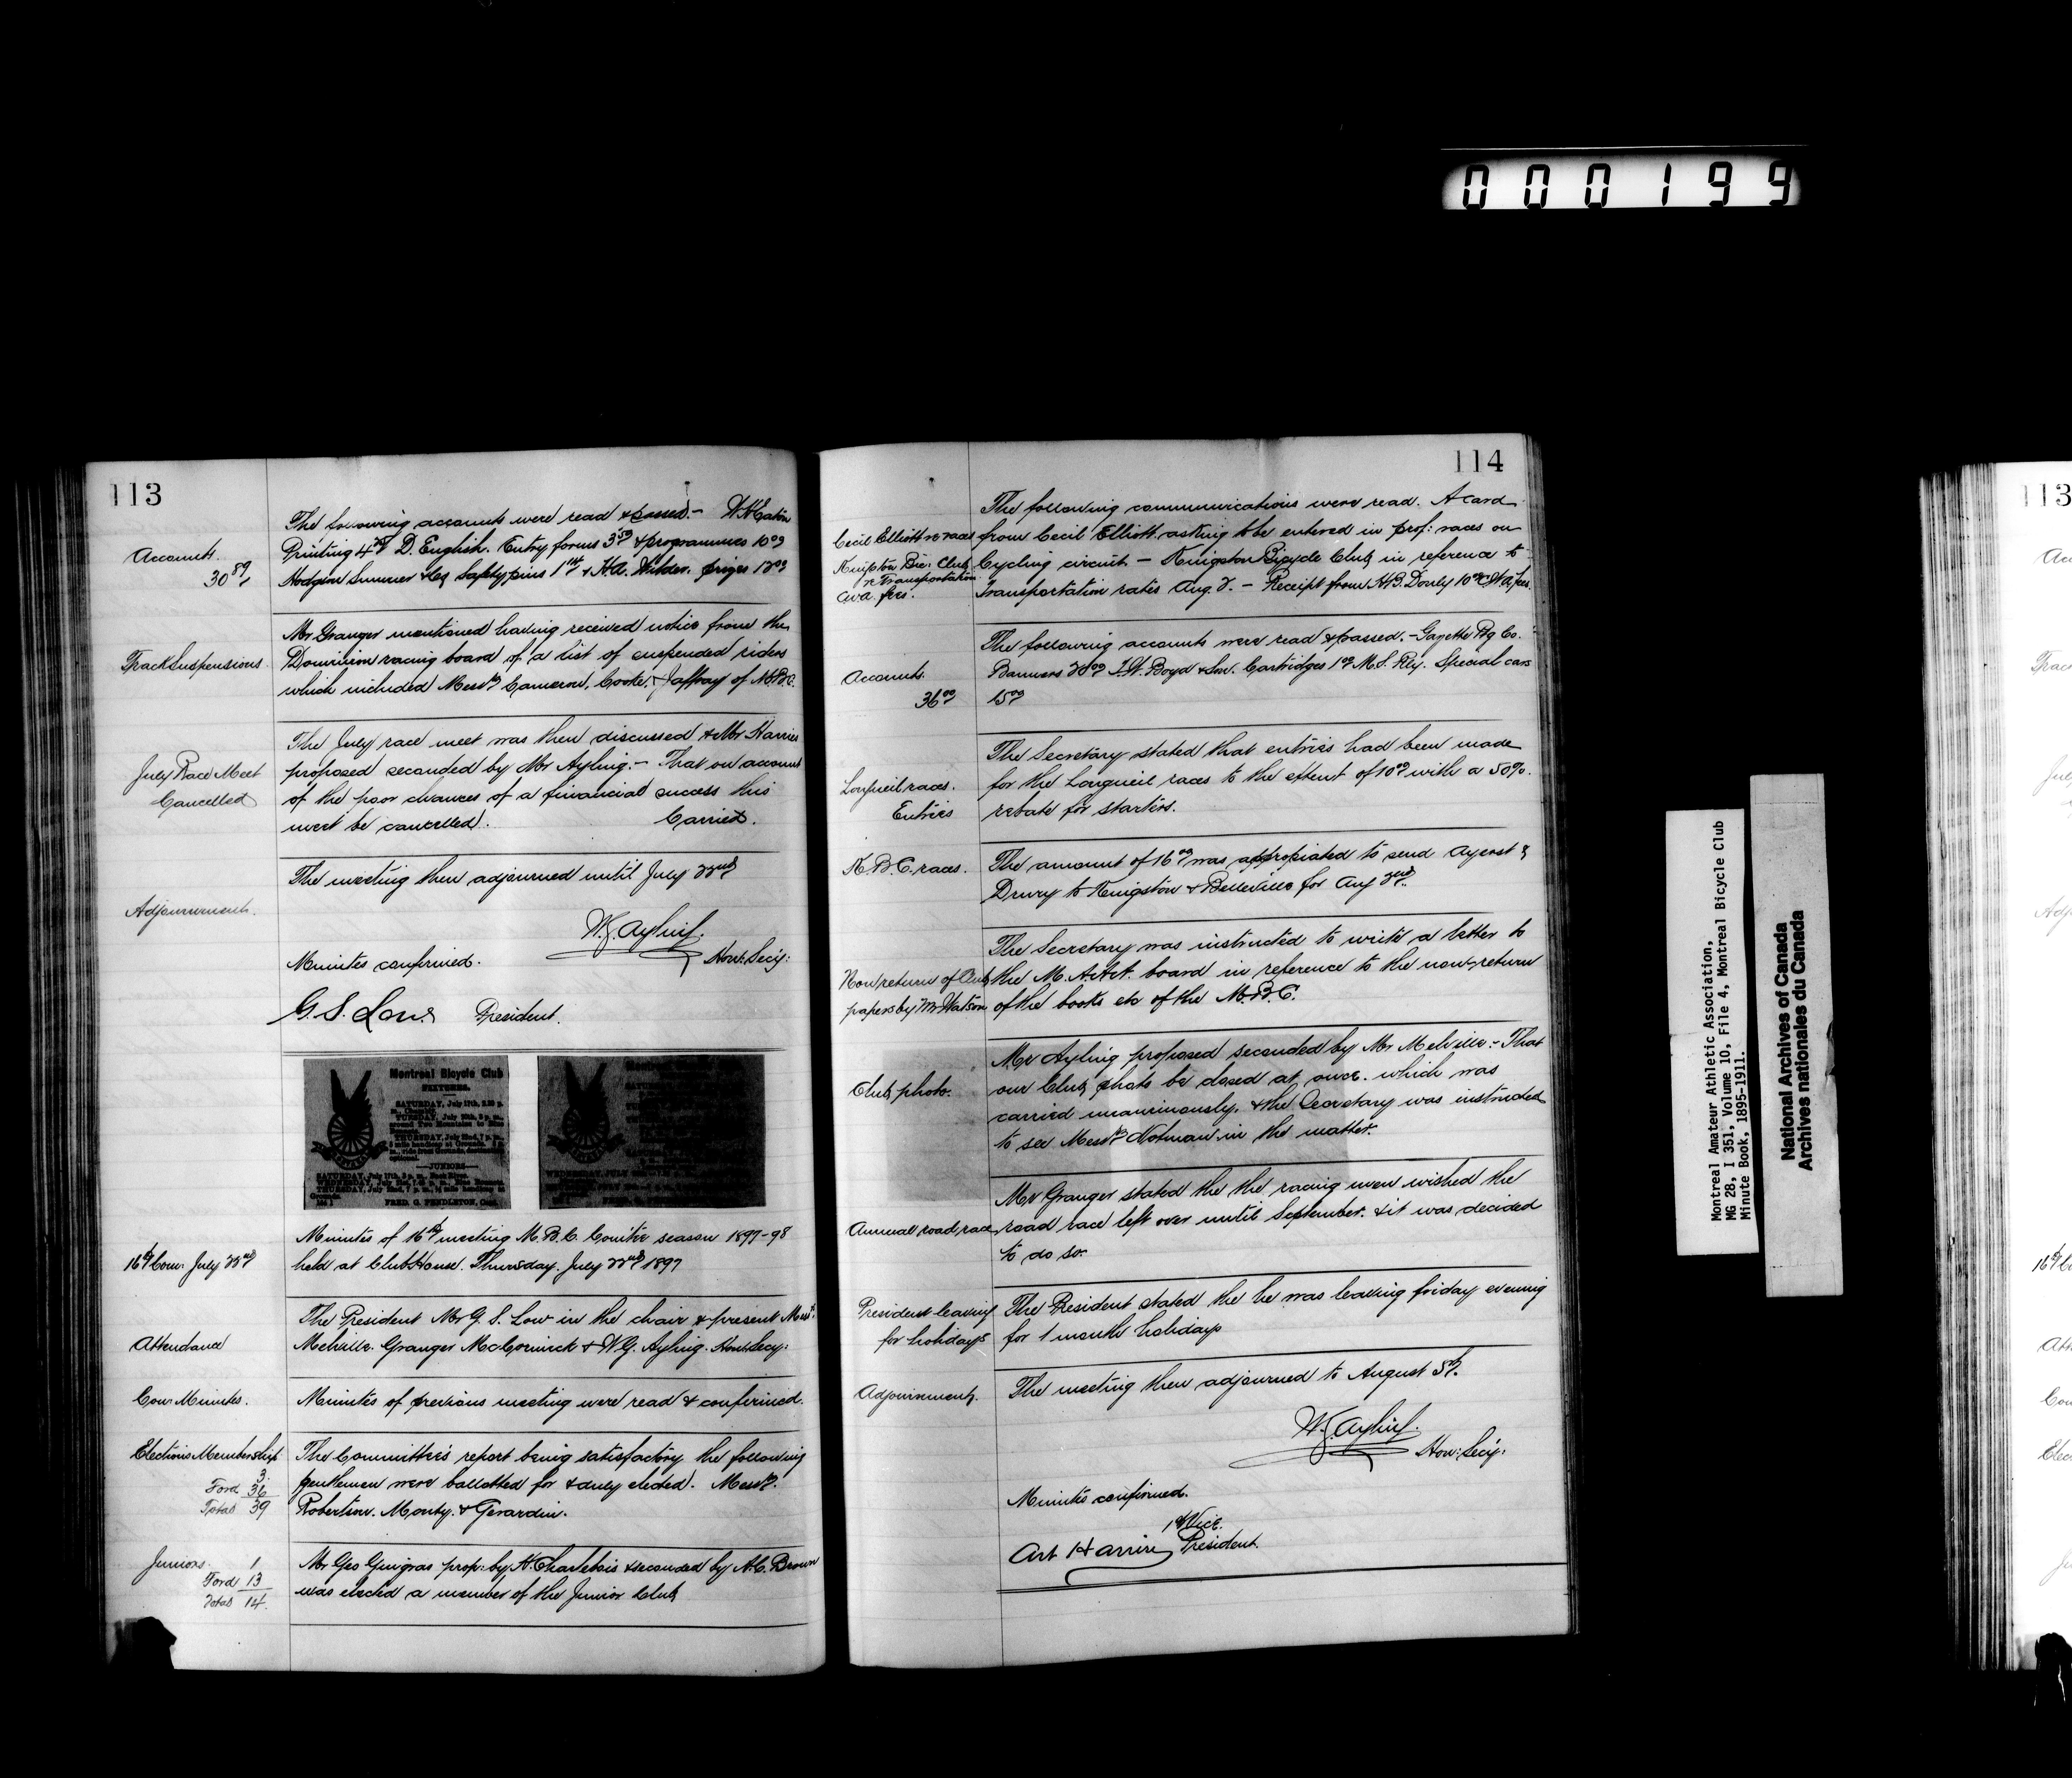 000199
113
The following accounts were read & passed.- W.H. Eaton
Printing 4 D. English. Entry forms 3 & programmes 10 00
Hodgson Sumner & Co Safety pins 1 & H.A. Wilder. prizes 12 00
Accounts.
30 89
Mr Granger mentioned having received notice from the
Track Suspensions. Dominion racing board of a list of suspended riders
which included Messrs Cameron, Cooke, & Jaffray of M.B.C.
The July race meet was then discussed & Mr Harries
July Race Meet proposed seconded by Mr Ayling.- That on account
Cancelled of the poor chances of a financial success this
meet be cancelled. Carried.
The meeting then adjourned until July 22nd
Adjournment.
W.G. Ayling.
Minutes confirmed. Hon: Secy:
G.S. Low. President.
Montreal Bicycle Club
FIXTURES.
SATURDAY, July 17th, 2.30 p.
TUESDAY, July 20th, 8 p. m.,
around Two Mountains
THURSDAY, July 22nd, 7 p. m.,
JUNIORS
SATURDAY, July 17th, 3 p. m.,
THURSDAY, July 22nd, 7 p. m.,
FRED. G. PENDLETON, Capt.
Minutes of 16th meeting M.B.C. Comittee season 1897-98
16th Com. July 22nd held at Club House. Thursday. July 22nd 1897
The President Mr G. S. Low in the chair & present Messrs.
Attendance Melville. Granger McCormick & W.G. Ayling. Hon: Secy:
Con: Minutes. Minutes of previous meeting were read & confirmed.
Elections Membership The Committee's report being satisfactory the following
3.
Ford 36 gentlemen were ballotted for & duly elected. Messrs.
Total 39 Robertson. Monty. & Girardin.
Juniors. 1 Mr Geo Gingras prop: by H. Charlebois & seconded by A.C. Brown
Ford 13 was elected a member of the Junior Club
Total 14.
114
The following communications were read. A card
Cecil Elliott re races from Cecil Elliott asking to be entered in prof: races on
Kingston Bic: Club Cycling circuit - Kingston Bicycle Club in reference to
re Transportation
C.W.A. fees. Transportation rates Aug. 2. - Receipt from H.B. Donly 10 C.W.A. fees.
The following accounts were read & passed.- Gazette Ptg Co.
Accounts. Banners 20 00 T.W. Boyd & Son. Cartridges 1 00 M.S. Rly. Special cars
36 00 15 00
The Secretary stated that entries had been made
Longueil races. for the Longueil races to the extent of 10 00 with a 50%.
Entries rebate for starters.
K.B.C. races. The amount of 16 00 was appropiated to send Aycost &
Drury to Kingston & Belleville for Aug 2nd.
The Secretary was instructed to write a letter to
Non return of Club the M.A.A.A. board in reference to the non-return
papers by Mr Watson of the books etc of the M.B.C.
Mr Ayling proposed seconded by Mr Melville:- That
Club photo. our Club photo be closed at once. which was
carried unanimously. & the Secretary was instructed
to see Messrs Notman in the matter.
Mr Granger stated the the racing men wished the
Annual road race road race left over until September. & it was decided
to do so.
President leaving The President stated the he was leaving friday evening
for holidays for 1 month holidays
Adjournment. The meeting then adjourned to August 5th.
W.G. Ayling.
Hon: Secy:
Minutes confirmed.
1st Vice.
Art Harries President.
Montreal Amateur Athletic Association,
MG 28, I 351, Volume 10, File 4, Montreal Bicycle Club
Minute Book, 1895-1911.
National Archives of Canada
Archives nationales du Canada
113